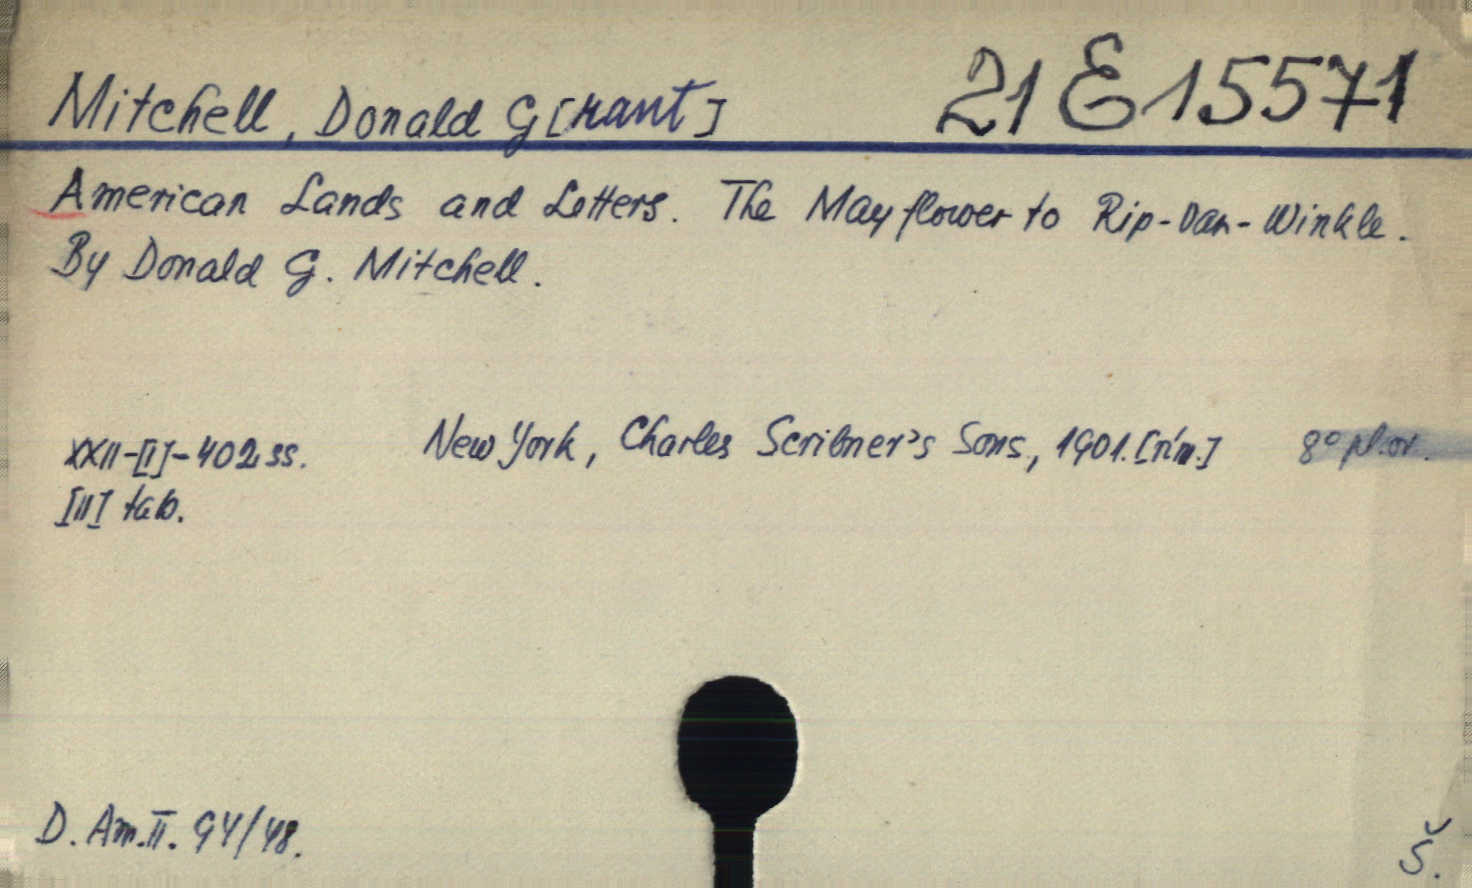 Mitchell, Donald G[rant] 21 E 15571
American Lands and Letters. The Mayflower to Rip-Van-Winkle.
By Donald G. Mitchell.
XXII-[I]-402 ss. New York, Charles Scribner's Sons, 1901. [řím.] 8° pl. or.
[II] tab.
D. Am. II. 94/48.
Š.